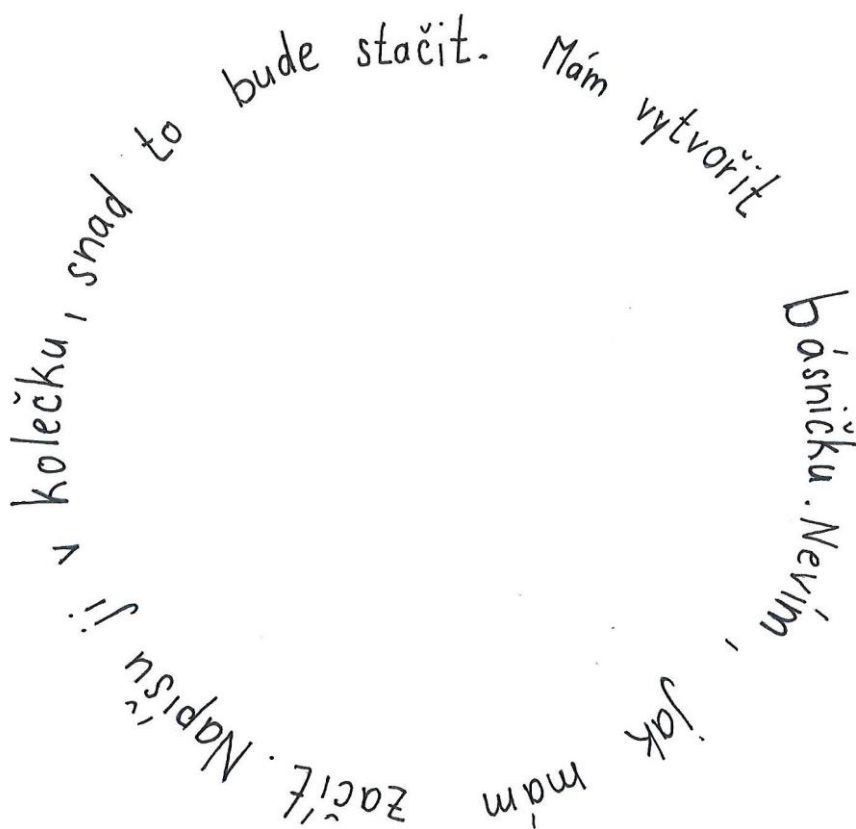 Mám vytvořit básničku. Nevím, jak mám začít. Napíšu ji v kolečku, snad to bude stačit.